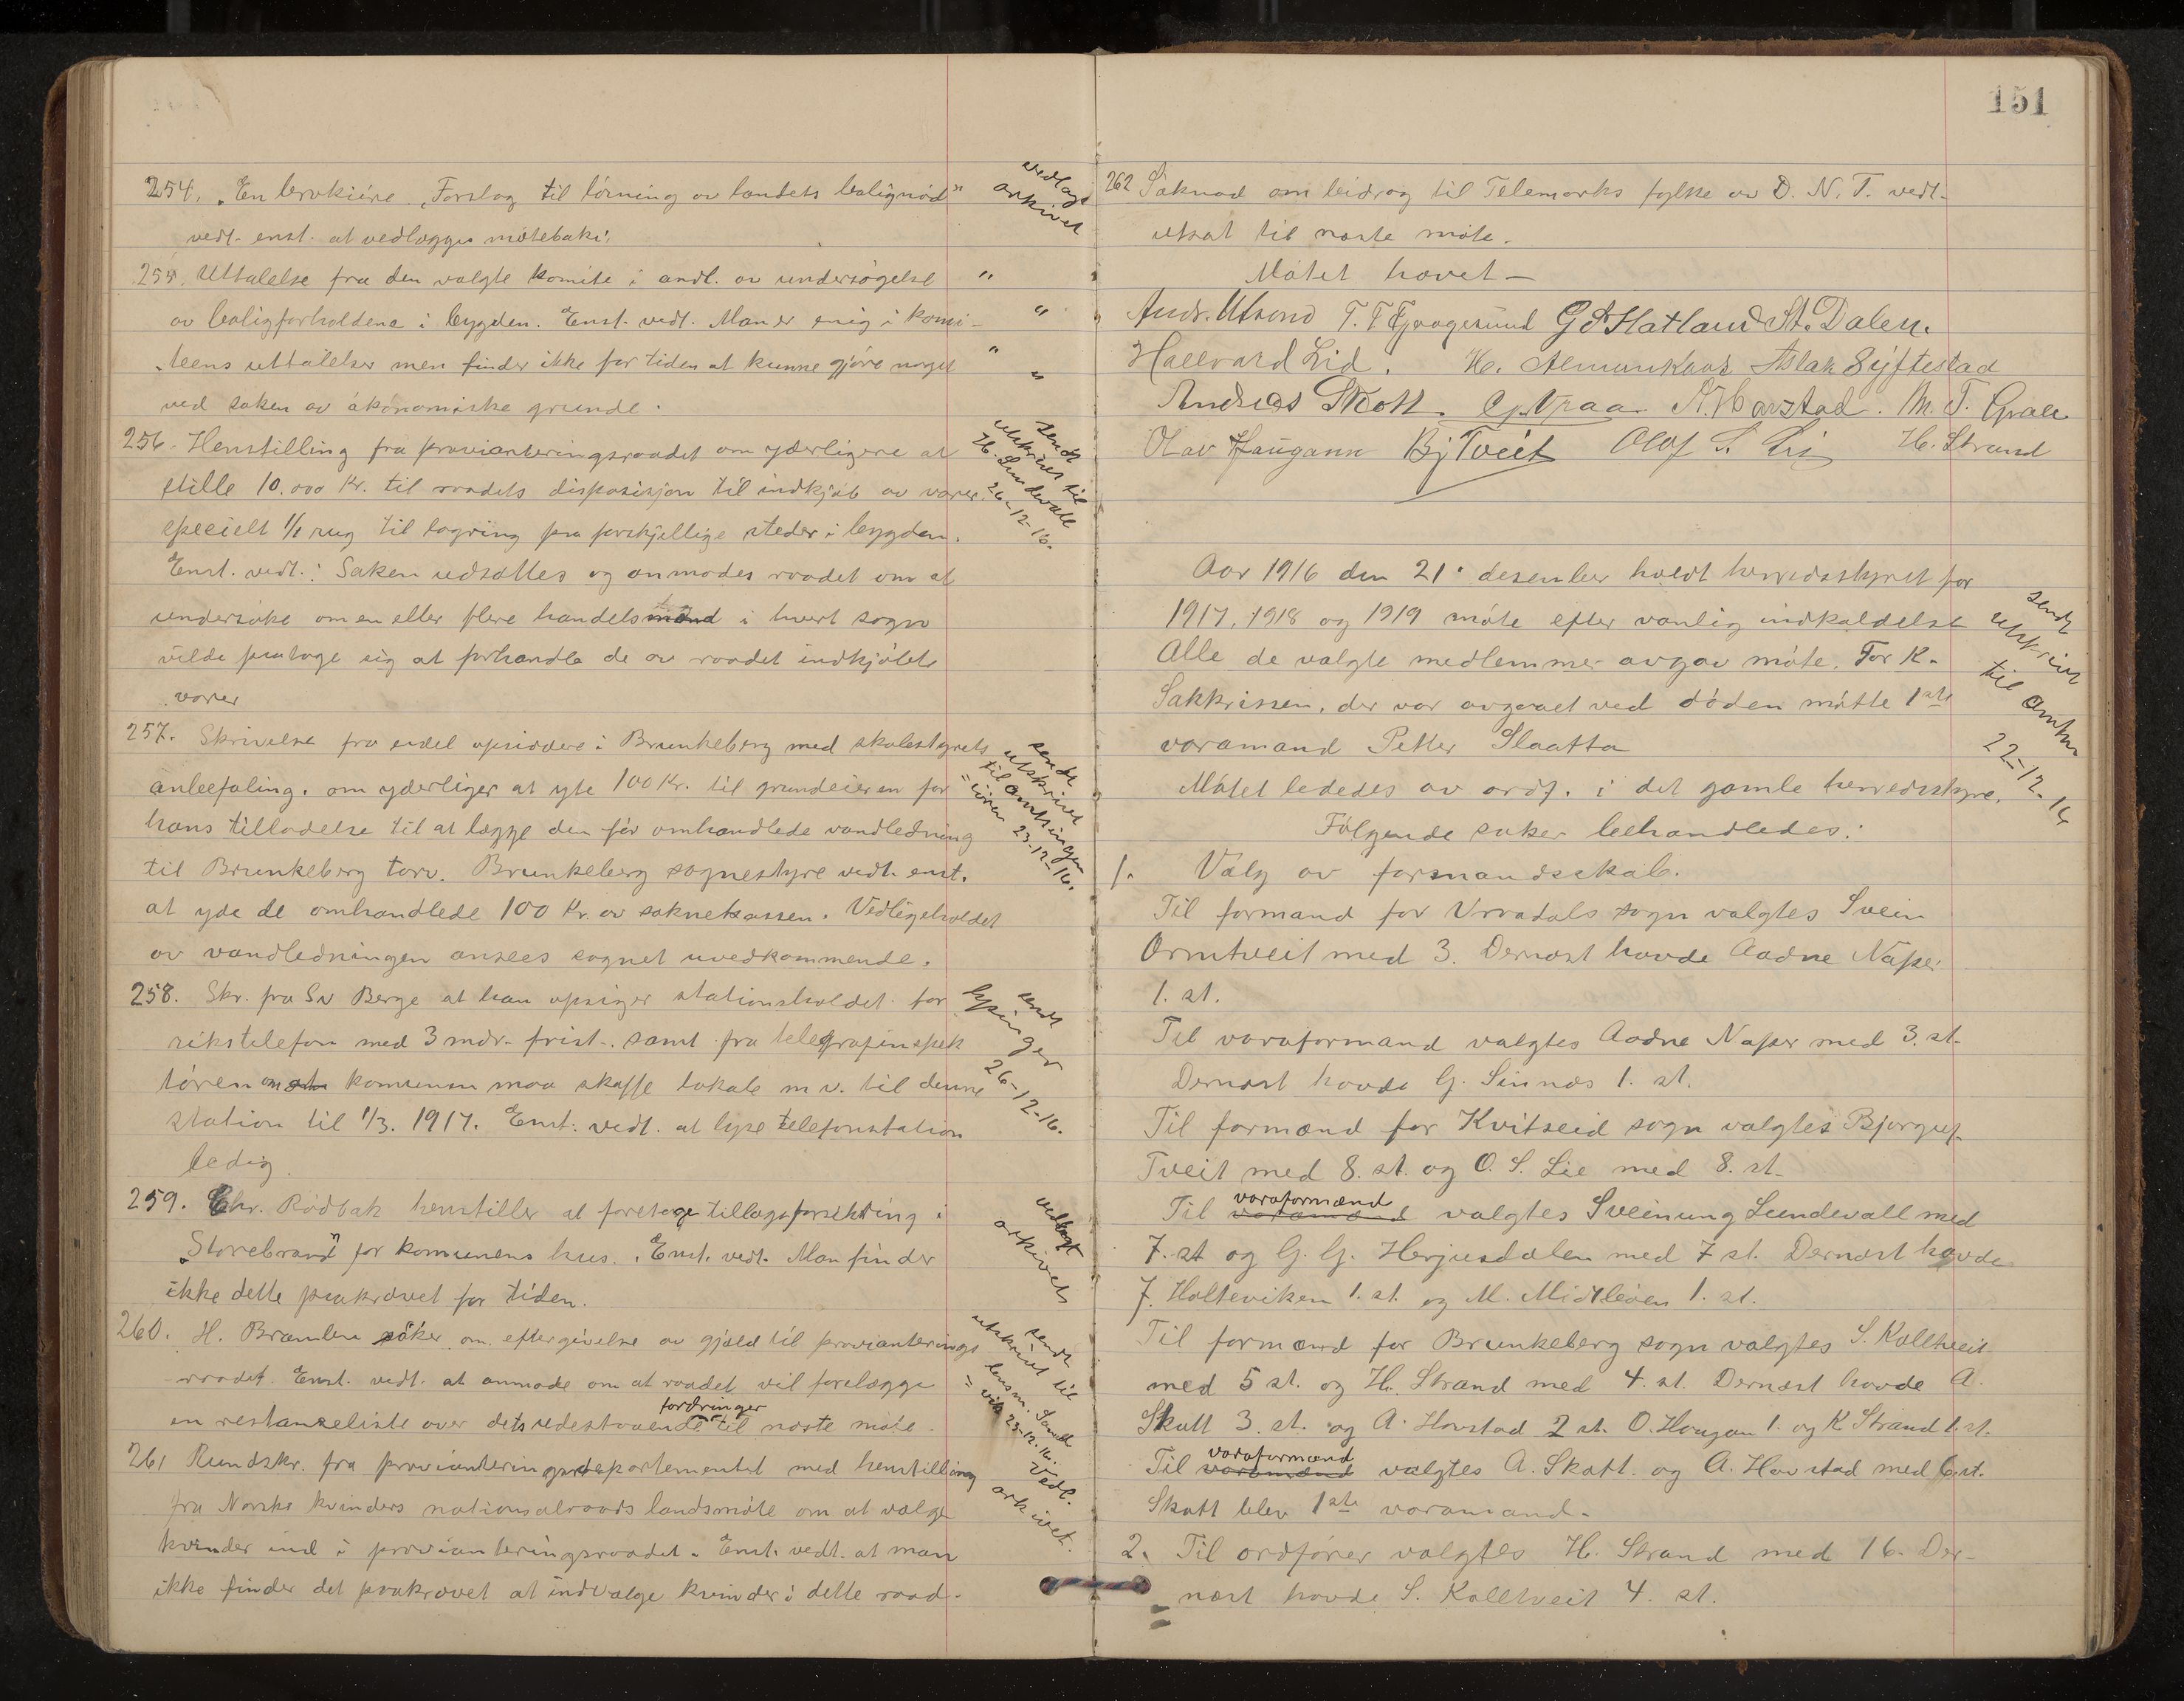 254. "En brokiére "Forslag til lösning av landets bolignöd"
vedt. enst. at vedlægges mötebok:
vedlags
arkivet
255. Uttalelse fra den valgte komite i andl. av undersögelse
av boligforholdene i bygden. Enst. vedt. Man er enig i komi-
teens uttalelser men finder ikke for tiden at kunne gjöre noget
ved saken av ökonomiske grunde.
" " " "
256. Henstilling fra provianteringsraadet om yderligere at
stille 10.000 Kr. til raadets disposisjon til indkjöb av varer
specielt 1/1 rug til lagring paa forskjellige steder i bygden.
Enst. vedt.: Saken utsættes og anmodes raadet om at
undersöke om en eller flere handelsmænd i hvert sogn
vilde paatage sig at forhandle de av raadet indkjöbte
varer
sendt
utskrivt til
H. Lundevall
26-12-16.
257. Skrivelse fra endel opsiddere i Brunkeberg med skolestyrets
anbefaling, om yderliger at yte 100 Kr. til grundeieren for
hans tilladelse til at lægge den för omhandlede vandledning
til Brunkeberg torv. Brunkeberg sognestyre vedt. enst.
at yde de omhandlede 100 Kr. av soknekassen. Vedligeholdet
av vandledningen ansees sognet uvedkommende.
sendt
utskrivt
til amtsingen
=iören 23-12-16.
258. Skr. fra Sv Berge at han opsiger stationsholdet for
rikstelefon med 3 mdr. frist. samt fra telegrafinspek
tören om at komunen maa skaffe lokale m v. til denne
station til 1/3. 1917. Enst. vedt. at lyse telefonstation
ledig.
sendt
lysinger
26-12-16.
259. Chr. Rödbak henstiller at foretage tillægsforsikring i
"Storebrand" for komunens hus. Enst. vedt. Man finder
ikke dette paakrævet for tiden.
vedlagt
arkivets
260. H. Bramlien söker om eftergivelse av gjæld til provianterings
raadet. Enst. vedt. at anmode om at raadet vil forelægge
en restanseliste over dets udestaaende fordringer til næste möte.
sendt
utskrivt til
lensm. Sand
=vik 23-12-16.
261 Rundskr. fra provianteringsdepartementet med henstilling
fra Norske kvinders nationsalraads landsmöte om at vælge
kvinder ind i provianteringsraadet. Enst. vedt. at man
ikke finder det paakrævet at indvælge kvinder i dette raad.
Vedl.
arkivet.
151
262 Söknad om bidrag til Telemarks fylke av D. N. T. vedt-
utsat til næste möte.
Mötet hævet —
Andr. Utsond T. T. Gd Flatland St. Dalen.
Hallvard Lid. H. Aslak Syftestad
Andreas Skott. G. Vraa. A. Havstad. M. T. Graae
Olav Haugann Bj Tveit Olaf S. Lie H. Strand
Aar 1916 den 21. desember holdt herredsstyret for
1917, 1918 og 1919 möte efter vanlig indkaldelse
Alle de valgte medlemmer avgav möte. For K.
Sakkrissen, der var avgaaet ved döden mötte 1ste
varamand Petter Slaatta
Mötet lededes av ordf. i det gamle herredsstyre.
sendt
utskrivt
til amtm
22-12-16
Fölgende saker behandledes:
1. Valg av formandsskab.
Til formand for Vraadals sogn valgtes Svein
Ormtveit med 3. Dernæst havde Aadne Naper
1. st.
Til varaformand valgtes Aadne Naper med 3. st.
Dernæst havde G. Sinnes 1. st.
Til formænd for Kvitseid sogn valgtes Bjorguf
Tveit med 8. st. og O. S. Lie med 8. st.
Til varamænd varaformænd valgtes Sveinung Lundevall med
7. st og G. G. Herjusdalen med 7 st. Dernæst havde
J. Holteviken 1. st. og M. Midtböen 1. st.
Til formænd for Brunkeberg sogn valgtes S. Kolltveit
med 5 st. og H. Strand med 4. st Dernæst havde A.
Skott 3. st. og A. Havstad 2 st. O. Haugan 1. og K Strand 1. st.
Til varamænd varaformænd valgtes A. Skott. og A. Havstad med 6. st.
Skott blev 1ste varamand.
2. Til ordförer valgtes H. Strand med 16. Der-
næst havde S. Kolltveit 4. st.